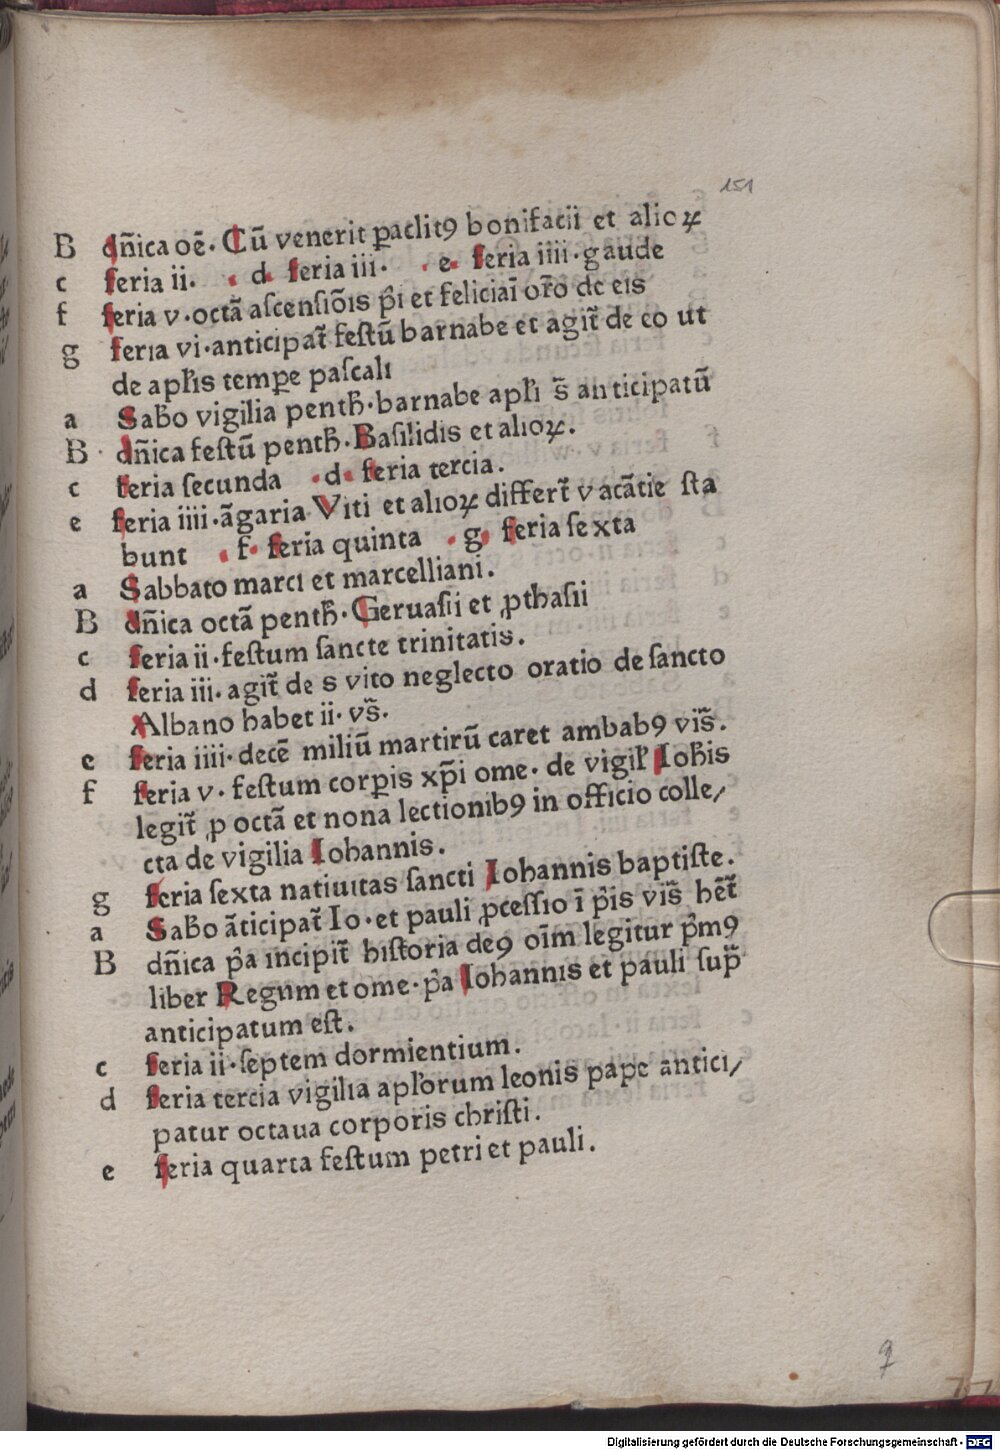 151
B dn̄ica oē · Cū venerit ꝑaclitꝰ bonifacii et alioꝝ
c feria ii. · d · feria iii. · e · feria iiii · gaude
f feria v · octā aſcenſiōis pͥi et feliciāi or̄o de eis
g feria vi · anticipat̄ feſtū barnabe et agit̄ de eo ut
de apl̄is tempꝑe paſcali
a Sab̄o vigilia penth̄ · barnabe apl̄i s̄ anticipatū
B · dn̄ica feſtū penth̄ · Baſilidis et alioꝝ .
c feria ſecunda · d · feria tercia .
e feria iiii · āgaria Viti et alioꝝ differt̄ vacātie ſta
bunt · f · feria quinta · g · feria ſexta
a Sabbato marci et marcelliani .
B dn̄ica octā penth̄ · Geruaſii et ꝓthaſii
c feria ii · feſtum ſancte trinitatis .
d feria iii · agit̄ de s vito neglecto oratio de ſancto
Albano habet ii · vs̄ .
e feria iiii · decē miliū martirū caret ambabꝰ vis̄ .
f feria v · feſtum corꝑis xp̄i ome · de vigil̄ Ioh̄is
legit̄ ꝓ octā et nona lectionibꝰ in officio colle/
cta de vigilia Iohannis .
g feria ſexta natiuitas ſancti Iohannis baptiſte .
a Sab̄o āticipat̄ Io · et pauli ꝓceſſio ī pͥis vis̄ hēt̄
B dn̄ica pͥa incipit̄ hiſtoria deꝰ oīm legitur pͥmꝰ
liber Regum et ome · pͥa Iohannis et pauli ſup̄
anticipatum eſt .
c feria ii · ſeptem dormientium .
d feria tercia vigilia apl̄orum leonis pape antici/
patur octaua corporis chriſti .
e feria quarta feſtum petri et pauli .
Digitalisierung gefördert durch die Deutsche Forschungsgemeinschaft - DFG